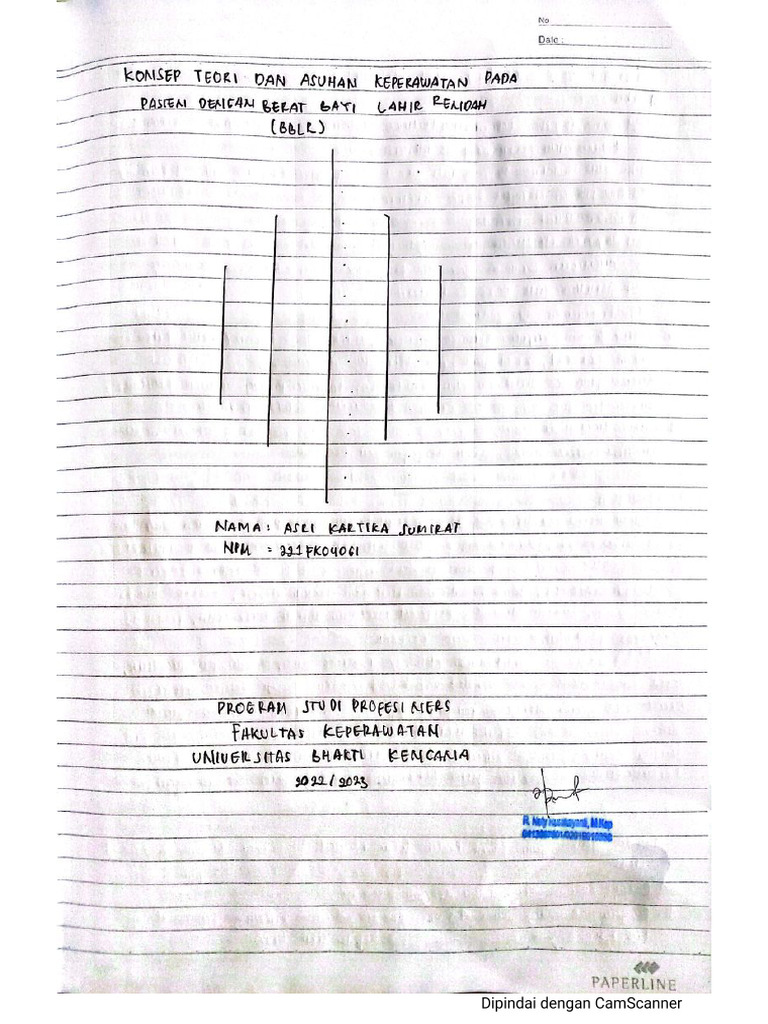 No
Date :
KONSEP TEORI DAN ASUHAN KEPERAWATAN PADA
PASIEN DENGAN BERAT BAYI LAHIR RENDAH
(BBLR)
NAMA : ASRI KARTIKA SUMIRAT
NPM : 221FK04061
PROGRAM STUDI PROFESI NERS
FAKULTAS KEPERAWATAN
UNIVERSITAS BHAKTI KENCANA
2022/2023
R. Nety M.Kep
PAPERLINE
Dipindai dengan CamScanner